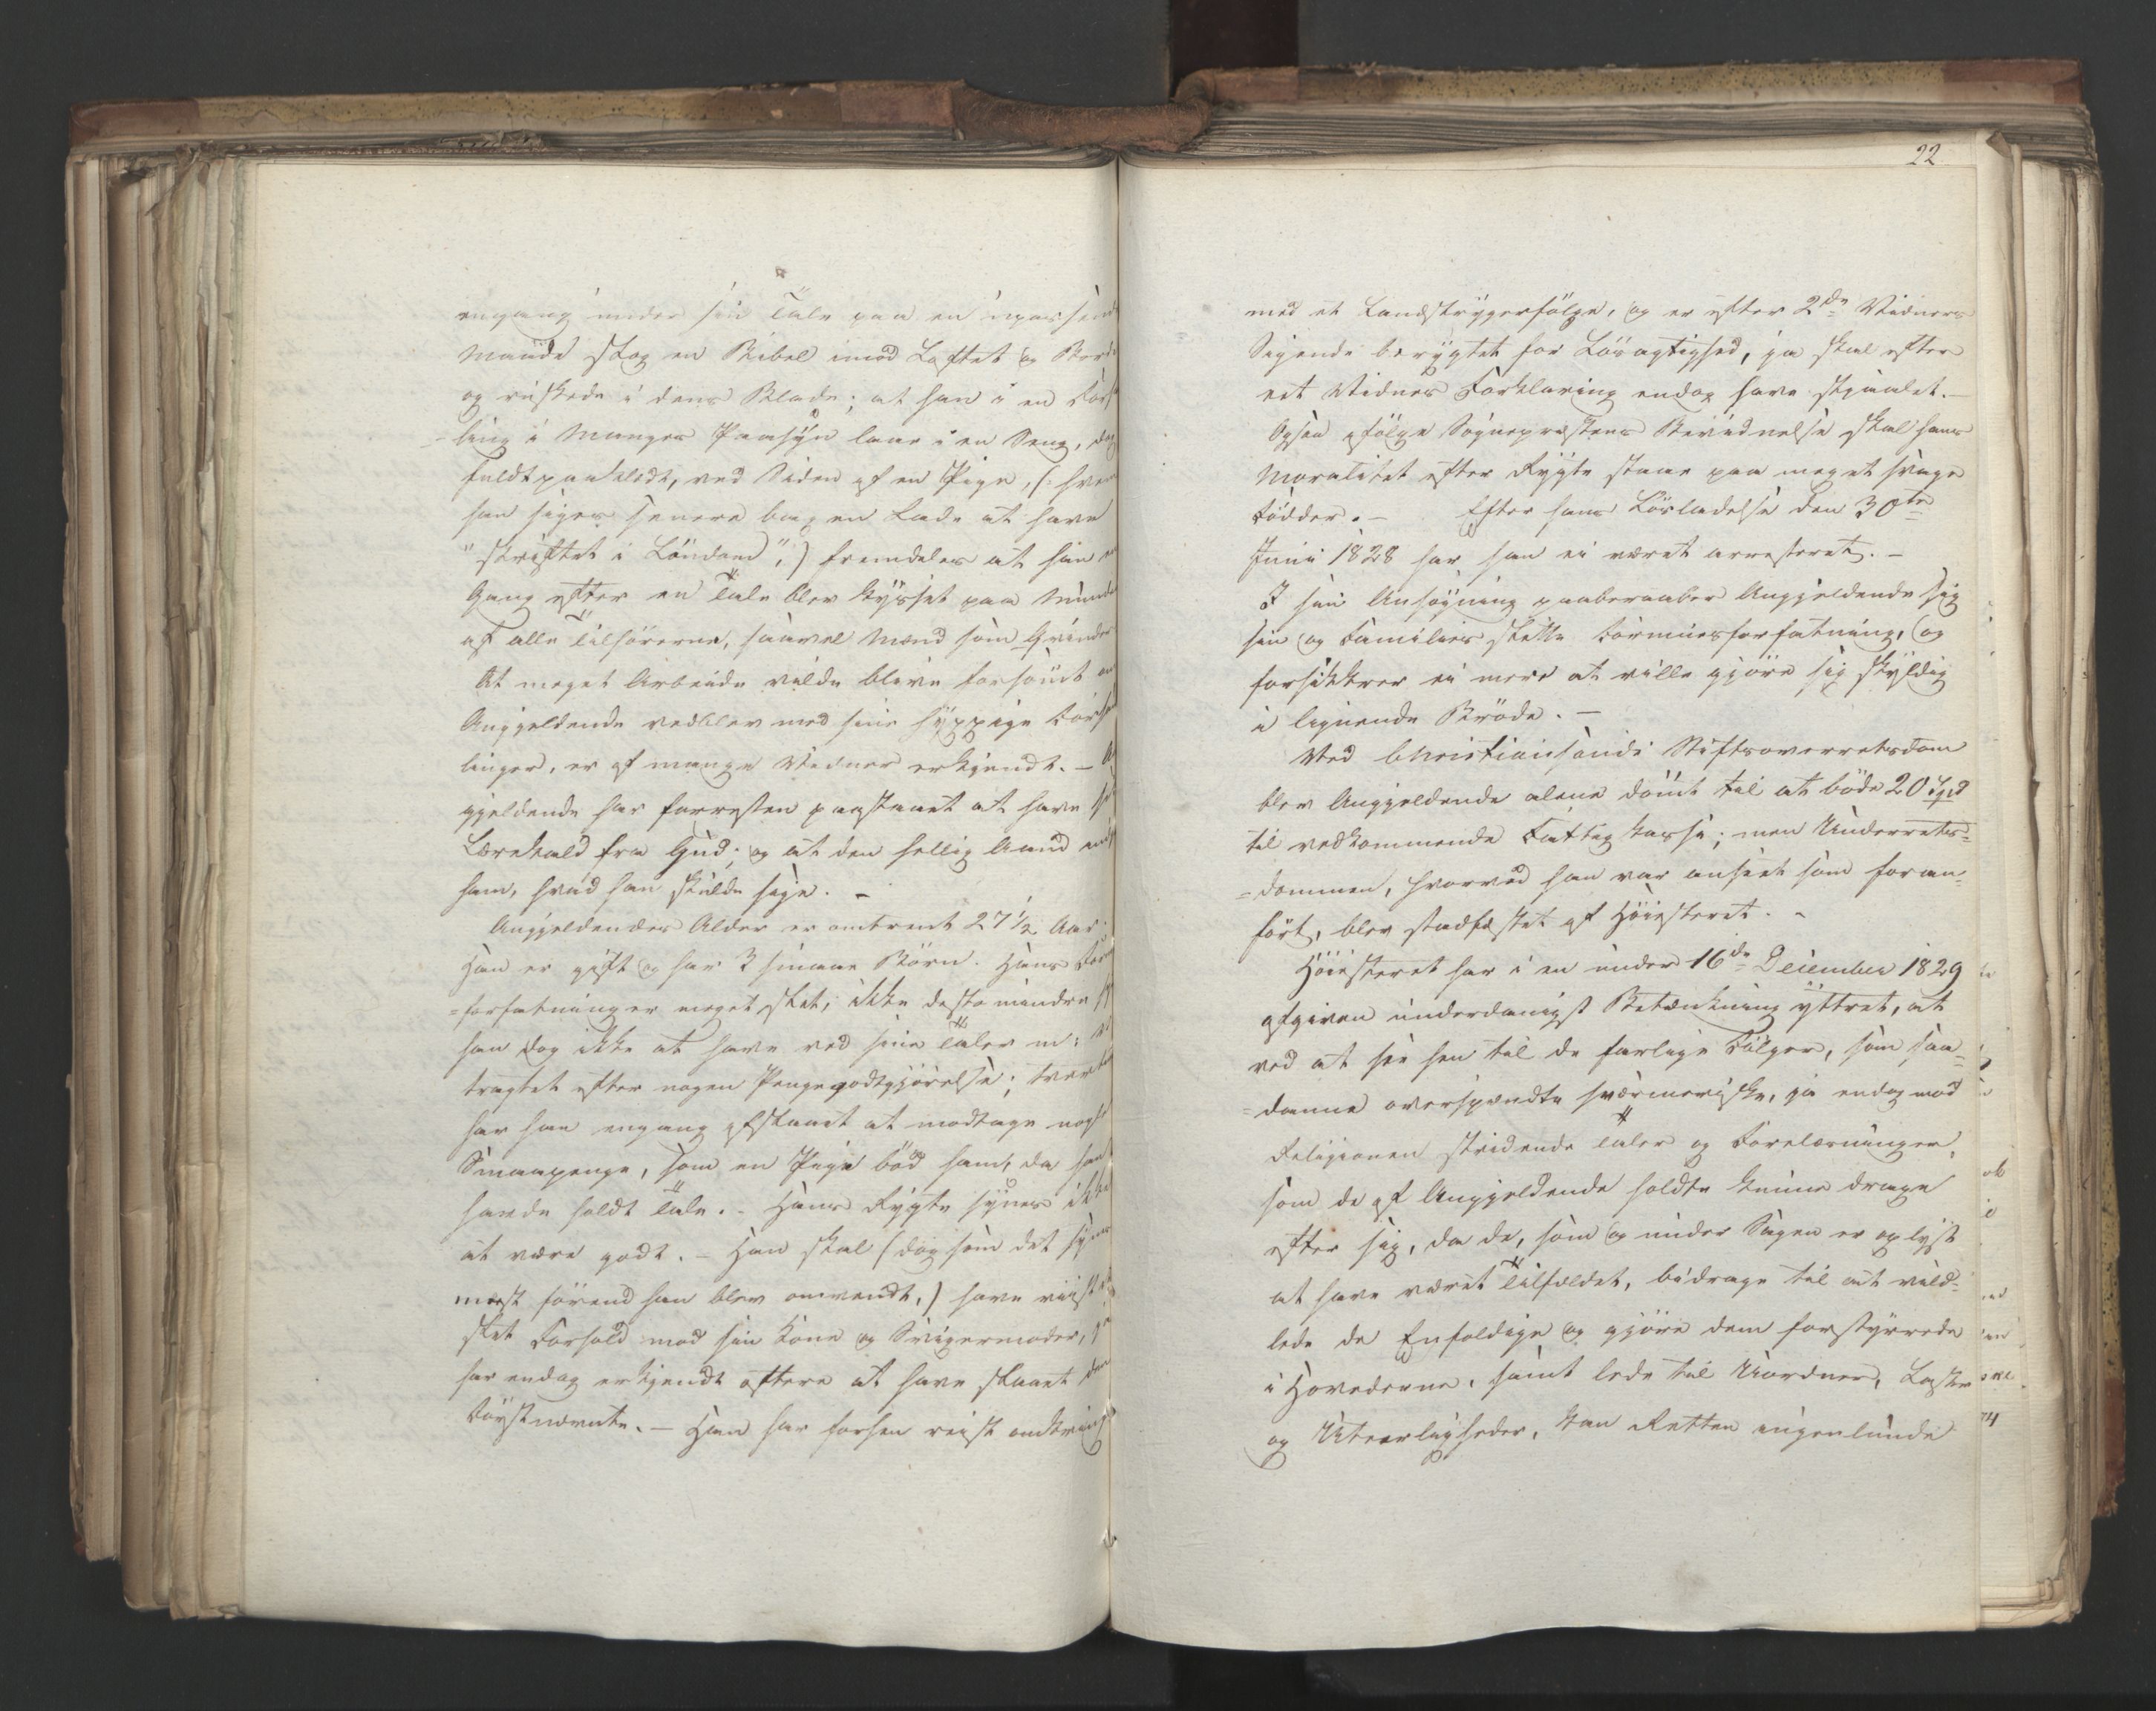 engang under sin Tale paa en upassende
Maade slog en Bibel imod Loftet og Bord
og ruskede i dens Blade; at han i en Forsam
-ling i Manges Paasÿn laae i en Seng, dog
fuldtpaaklædt, ved Siden af en Pige, (: hvem
han siges senere bag en Lade at have
"skriftet i Löndom",) fremdeles at han en
Gang efter en Tale blev kÿsset paa Munden
af alle Tilhörerne, saavel Mænd som Qvinder
At meget Arbeide vilde blive forsömt om
Angjeldende vedblev med sine hÿppige Forsam
linger, er af mange Vidner erkjendt. – An
gjeldende har forresten paastaaet at have sit
Lærekald fra Gud; og at den hellig Aand
ham, hvad han skulde sige. –
Angjeldendes Alder er omtrent 27 1/2 Aar.
Han er gift og har 3 smaae Börn. Hans Formues
=forfatning er meget slet; ikke desto mindre
han dog ikke at have ved sine Taler
tragtet efter nogen Pengegodtgjörelse; tvertimod
har han engang afslaaet at modtage nogle
Smaapenge, som en Pige böd ham, da han
havde holdt Tale. – Hans Rÿgte sÿnes ikke
at være godt. – Han skal (dog som det sÿnes
mest förend han blev omvendt,) have viist et
slet Forhold mod sin Kone og Svigermoder, ja
har endog erkjendt oftere at have slaaet den
Förstnævnte. – Han har forhen reist omkring
22
med et Landstrÿgerfölge, og er efter 2de Vidners
Sigende berÿgtet for Lösagtighed, ja skal efter
eet Vidnes Forklaring endog have stjaalet. –
Ogsaa ifölge Sognepræstens Bevidnelse skal hans
Moralitet efter Rÿgte staae paa meget svage
Födder. – Efter hans Lösladelse den 30te
Junii 1828 har han ei været arresteret. –
I sin Ansögning paaberaaber Angjeldende sig
sin og Families slette Formuesforfatning, og
forsikkrer ei mere at ville gjöre sig skÿldig
i lignende Bröde. –
Ved Christiansands Stiftsoverretsdom
blev Angjeldende alene dömt til at böde 20 Spd
til vedkommende Fattigkasse; men Underrets-
=dommen, hvorved han var anseet som foran-
fört, blev stadfæstet af Höiesteret. –
Höiesteret har i en under 16de December 1829
afgiven underdanigst Betænkning ÿttret, at
ved at see hen til de farlige Fölger, som saa-
=danne overspændte sværmeriske, ja endog mod
Religionen stridende Taler og Forelæsninger,
som de af Angjeldende holdte kunne drage
efter sig, da de, som og under Sagen er oplÿst
at have været Tilfældet, bidrage til at vild-
lede de Enfoldige og gjöre dem forstÿrrede
i Hovederne, samt lede til Uordner, Laster
og Uteerligheder, kan Retten ingenlunde